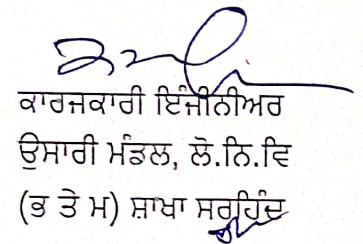 ਕਾਰਜਕਾਰੀ ਇੰਜੀਨੀਅਰ
ਉਸਾਰੀ ਮੰਡਲ, ਲੋ.ਨਿ.ਵਿ
(ਭ ਤੇ ਮ) ਸ਼ਾਖਾ ਸਰਹਿੰਦ